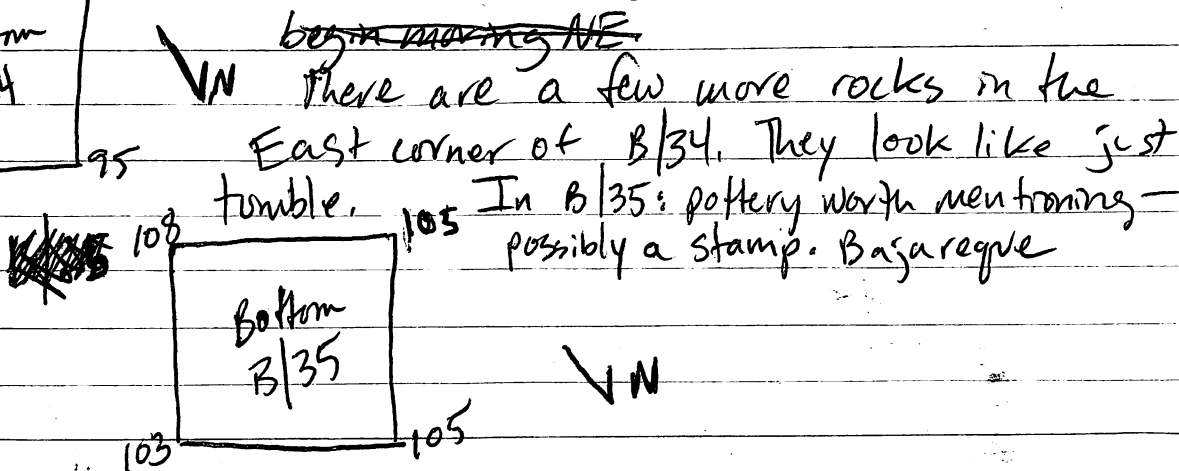 begin moving NE.
N There are a few more rocks in the
East corner of B/34. They look like just
95
tumble. In B/35: pottery worth mentioning—
108 105 possibly a stamp. Bajareque
Bottom
B/35
N
103 105